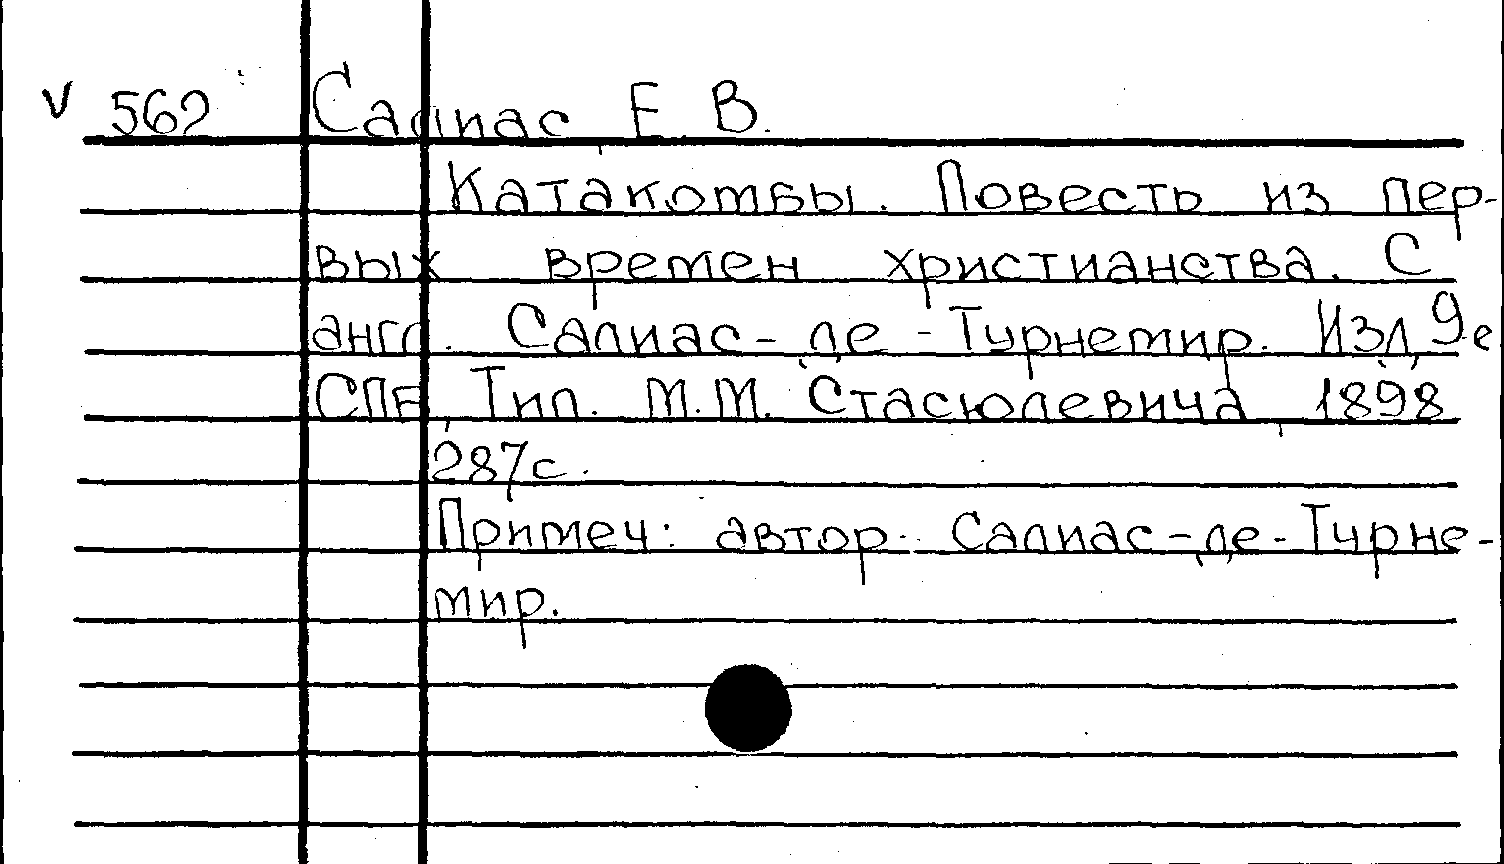 V 562 Салиас Е. В.
Катакомбы. Повесть из пер-
вых времен христианства. С
англ. Салиас-де-Турнемир. Изд 9е
СПБ, Тип. М.М. Стасюлевича, 1898
287с.
Примеч: автор: Салиас-де-Турне-
мир.